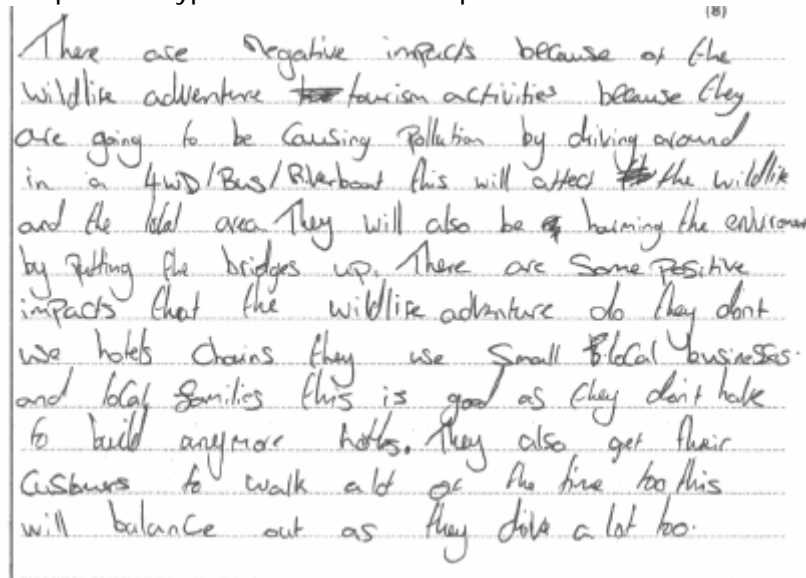 (8)
There are Negative impacts because of the
wildlife adventure tourism activities because they
are going to be causing Pollution by driving around
in a 4WD/Bus/Riverboat this will affect the wildlife
and the local area They will also be harming the enviromen
by Putting the bridges up. There are some Positive
impacts that the wildlife adventure do they dont
use hotels chains they use small local businesses.
and local families this is good as they don't have
to build anymore hotles. They also get their
Customers to walk alot of the time too this
will balance out as they drive a lot too.